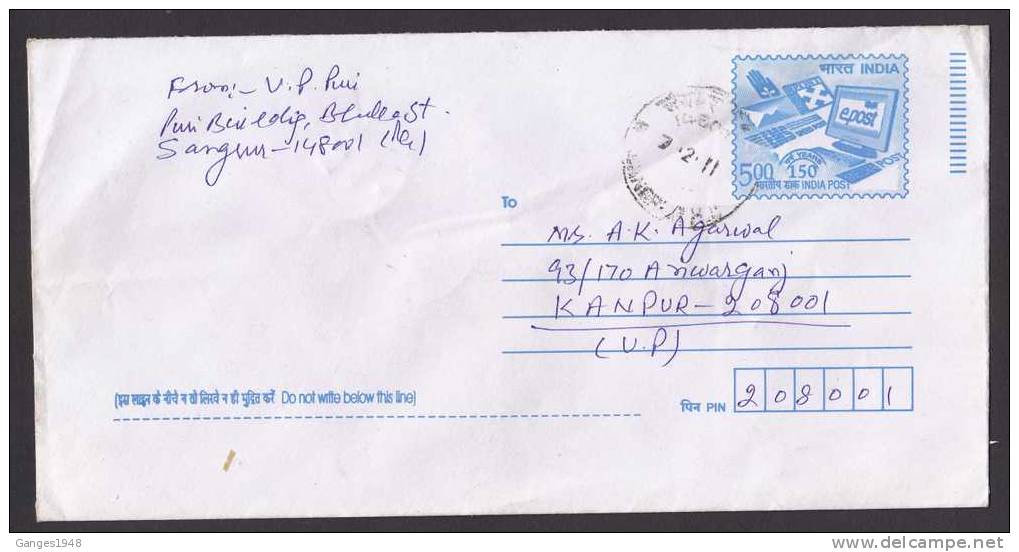 From:- V.P. Puri
Puri Building, St.
Sangrur-148001 (Pb)
भारत INDIA
epost
e-POST
150 YEARS
5.00
भारतीय डाक INDIA POST
7.2.11
To
Ms. A.K. Agarwal
93/170 Anwarganj
KANPUR-208001
(U.P)
(इस लाइन के नीचे न तो लिखे न ही मुद्रित करें Do not write below this line)
पिन PIN 208001
Ganges1948
delcampe.net